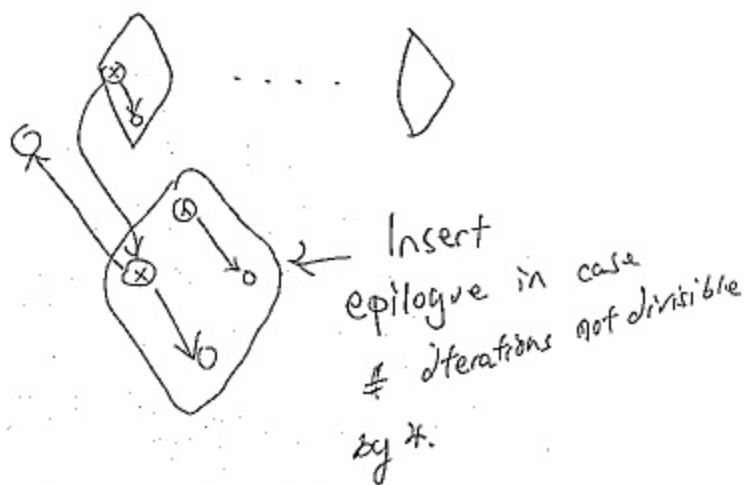 x
x
Insert
epilogue in case
# iterations not divisible
by 4.